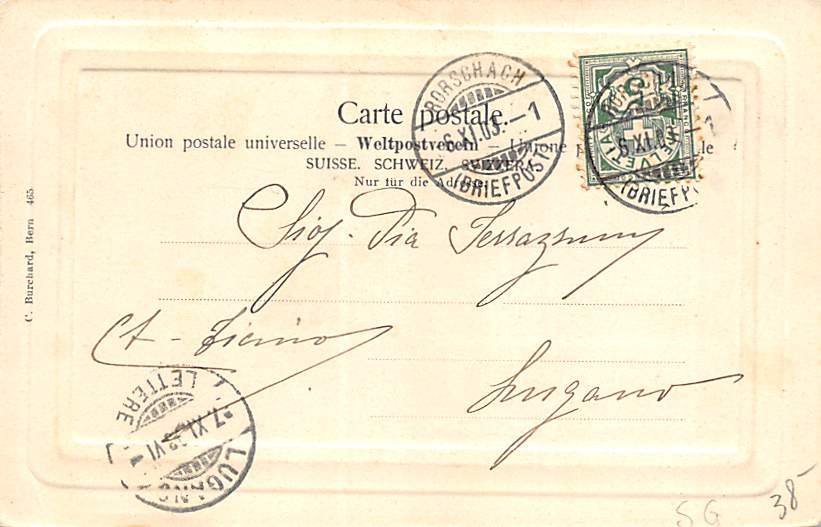 Carte postale.
Union postale universelle – Weltpostverein – Unione p le
SUISSE. SCHWEIZ. SVIZZERA.
Nur für die Adresse
RORSCHACH
6.XI.03.–1
(BRIEFPOST)
6.XI.03 1
(BRIEFP
HELVETIA
Sig. Pia
Ct - Ticino
Lugano
LETTERE
7.XI. VI
LUGANO
C. Burchard, Bern 465
SG 38-